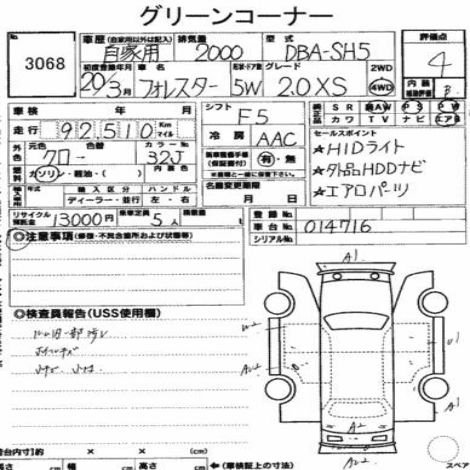 グリーンコーナー
No. 3068
車歴(自家用以外は記入) 自家用
排気量 2000
型式 DBA-SH5
評価点 4
初度登録年月 20/3月
車名 フォレスター
形状・ドア数 5W
グレード 2.0XS
2WD
4WD
内装 B
車検 年 月
シフト F5
SR AW PS PW
カワ TV ナビ エアB
走行 92510 Km マイル
冷房 AAC
セールスポイント
★HIDライト
★外品HDDナビ
★エアロパーツ
外色 元色 クロ 色替 カラーNo. 32J
(保証書付) 有・無
燃料 ガソリン・軽油・( )
名義変更期限 月 日
年式 輸入区分 ハンドル
ディーラー・並行 左・右
リサイクル預託金 13000円 乗車定員 5人 積載量
登録No.
車台No. 014716
シリアルNo.
◎注意事項(修復・不具合箇所および状態等)
◎検査員報告(USS使用欄)
A1
W2
A2
A1
A2
荷台内寸 × × (cm)
高さ (cm) 幅 (cm) 長さ (cm) 高さ (cm)
←(車検証上の寸法)
スペア